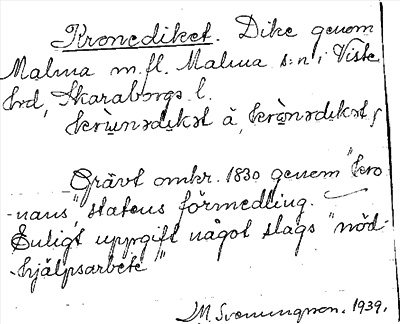 Kronediket. Dike genom
Malma m.fl. Malma s:n i Viste
hrd, Skaraborgs l.
Grävt omkr. 1830 genom "kro
-nans", statens förmedling.
Enligt uppgift något slags "nöd-
-hjälpsarbete"
M. Svenningson. 1939.